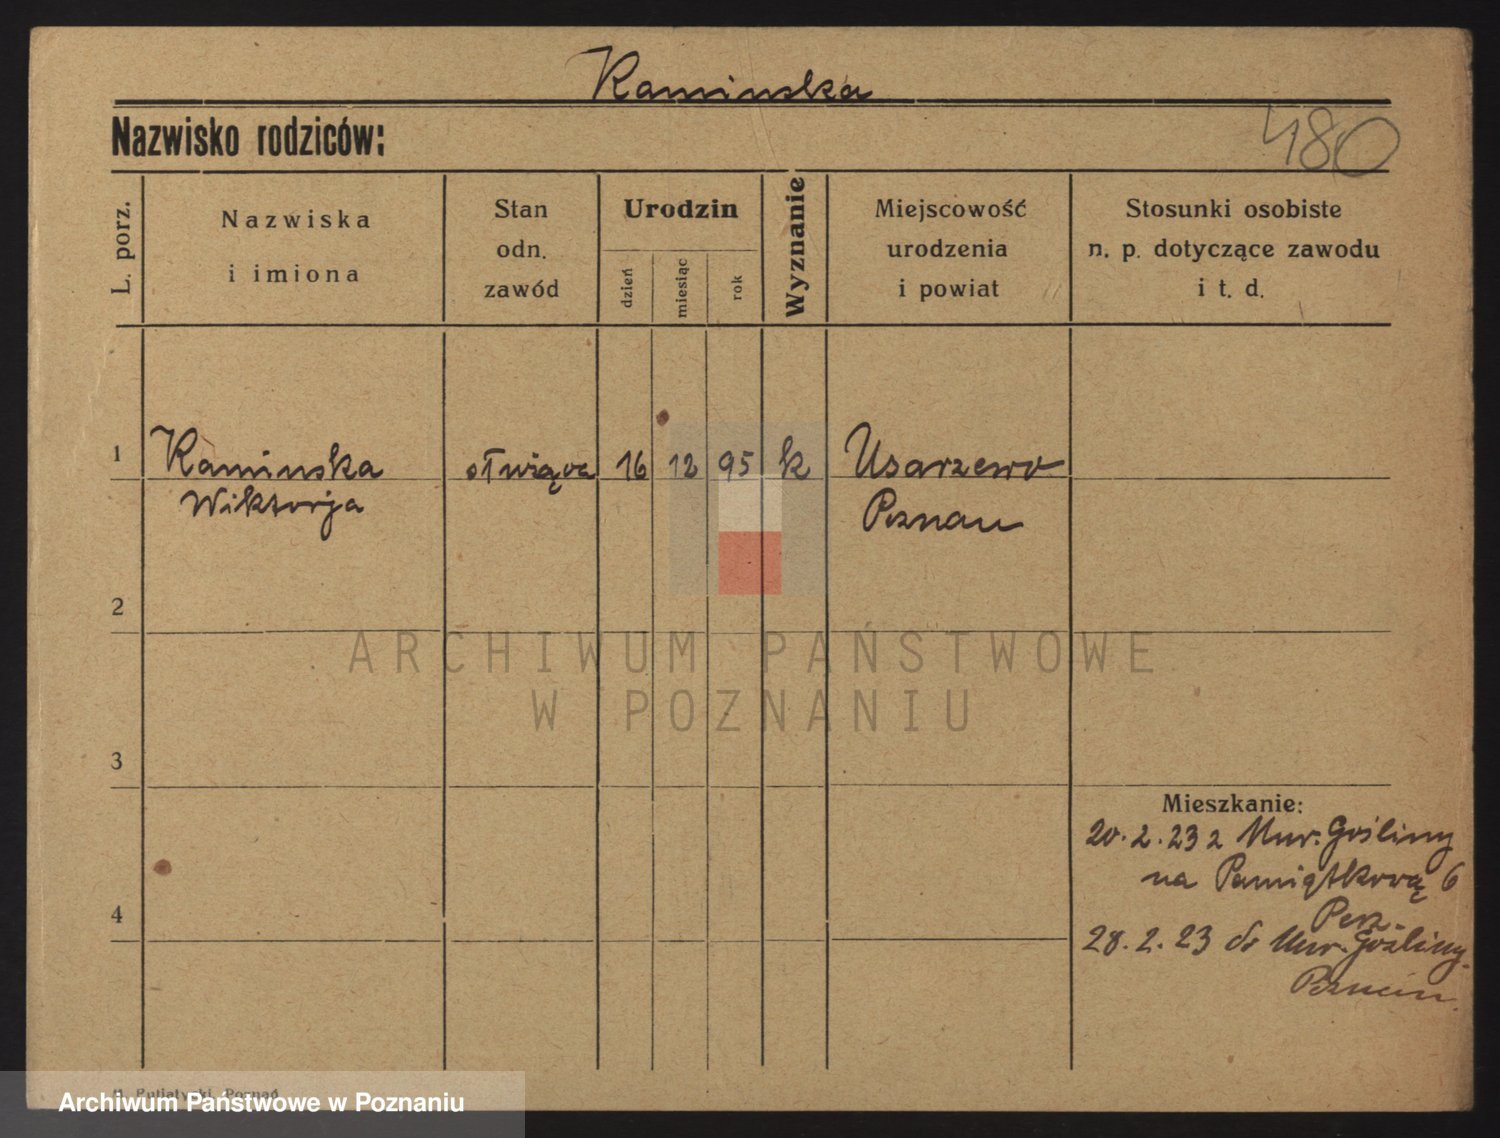 Kaminska
Nazwisko rodziców:
480
L. porz.
Nazwiska
i imiona
Stan
odn.
zawód
Urodzin
dzień
miesiąc
rok
Wyznanie
Miejscowość
urodzenia
i powiat
Stosunki osobiste
n. p. dotyczące zawodu
i t. d.
1 Kaminska 16 12 95 k Usarzewo
Wiktorja Poznan
2
ARCHIWUM PAŃSTWOWE
W POZNANIU
3
Mieszkanie:
20.2.23 z Mur. Gośliny
na Pamiątkową 6
4
28.2.23 do Mur. Gośliny
Poznań
Archiwum Państwowe w Poznaniu